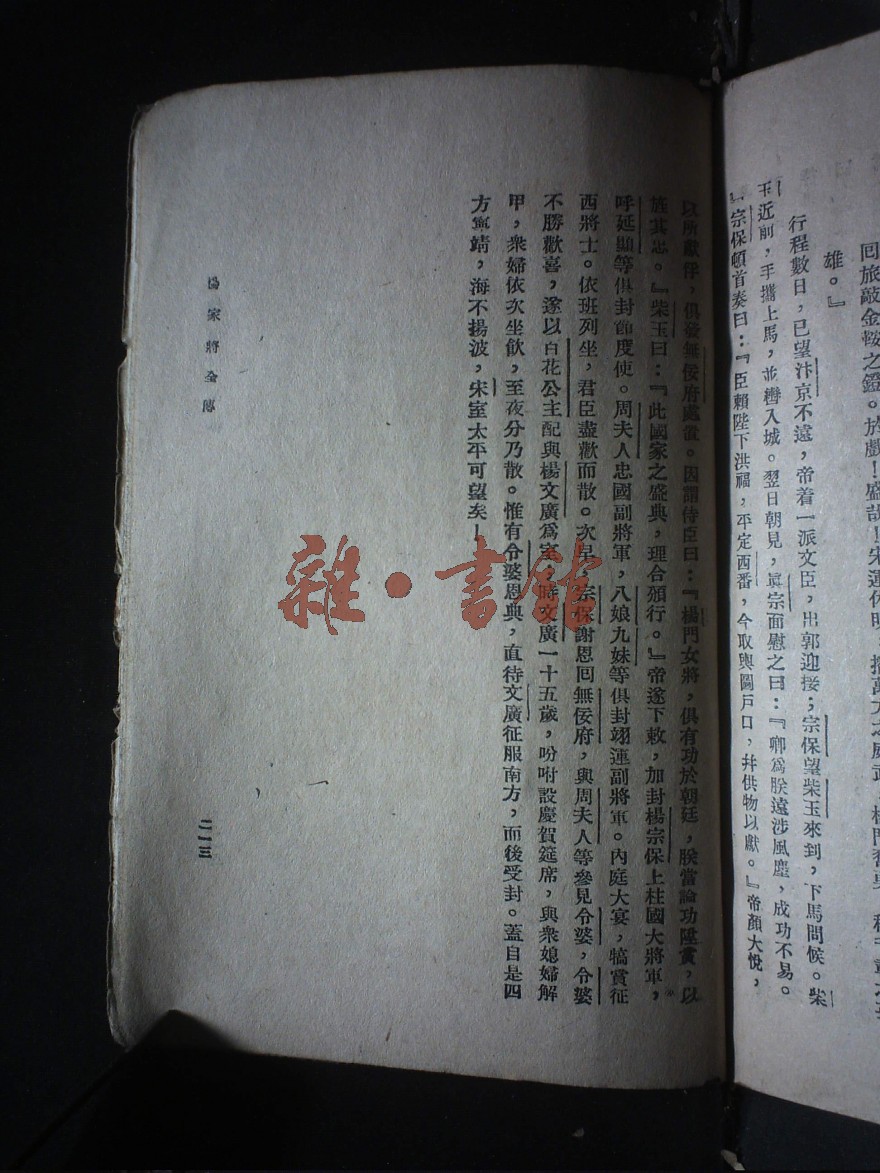 回旅敲金鞍之鐙。於戲！盛哉！宋運休明，
雄。』
行程數日，已望汴京不遠，帝着一派文臣，出郭迎接；宗保望柴玉來到，下馬問候。柴
玉近前，手攜上馬，並轡入城。翌日朝見，眞宗面慰之曰：『卿爲朕遠涉風塵，成功不易。
』宗保頓首奏曰：『臣賴陛下洪福，平定西番，今取輿圖戶口，幷供物以獻。』帝顏大悅，
以所獻俘，俱發無佞府處置。因謂侍臣曰：『楊門女將，俱有功於朝廷，朕當論功陞賞，以
旌其忠。』柴玉曰：『此國家之盛典，理合頒行。』帝遂下敕，加封楊宗保上柱國大將軍，
呼延顯等俱封節度使。周夫人忠國副將軍，八娘九妹等俱封翊運副將軍。內庭大宴，犒賞征
西將士。依班列坐，君臣盡歡而散。次早，宗保謝恩回無佞府，與周夫人等參見令婆，令婆
不勝歡喜，遂以百花公主配與楊文廣爲室，時文廣一十五歲，吩咐設慶賀筵席，與衆媳婦解
甲，衆婦依次坐飲，至夜分乃散。惟有令婆恩典，直待文廣征服南方，而後受封。蓋自是四
方寧靖，海不揚波，宋室太平可望矣！
楊家將全傳
二一三
雜·書館